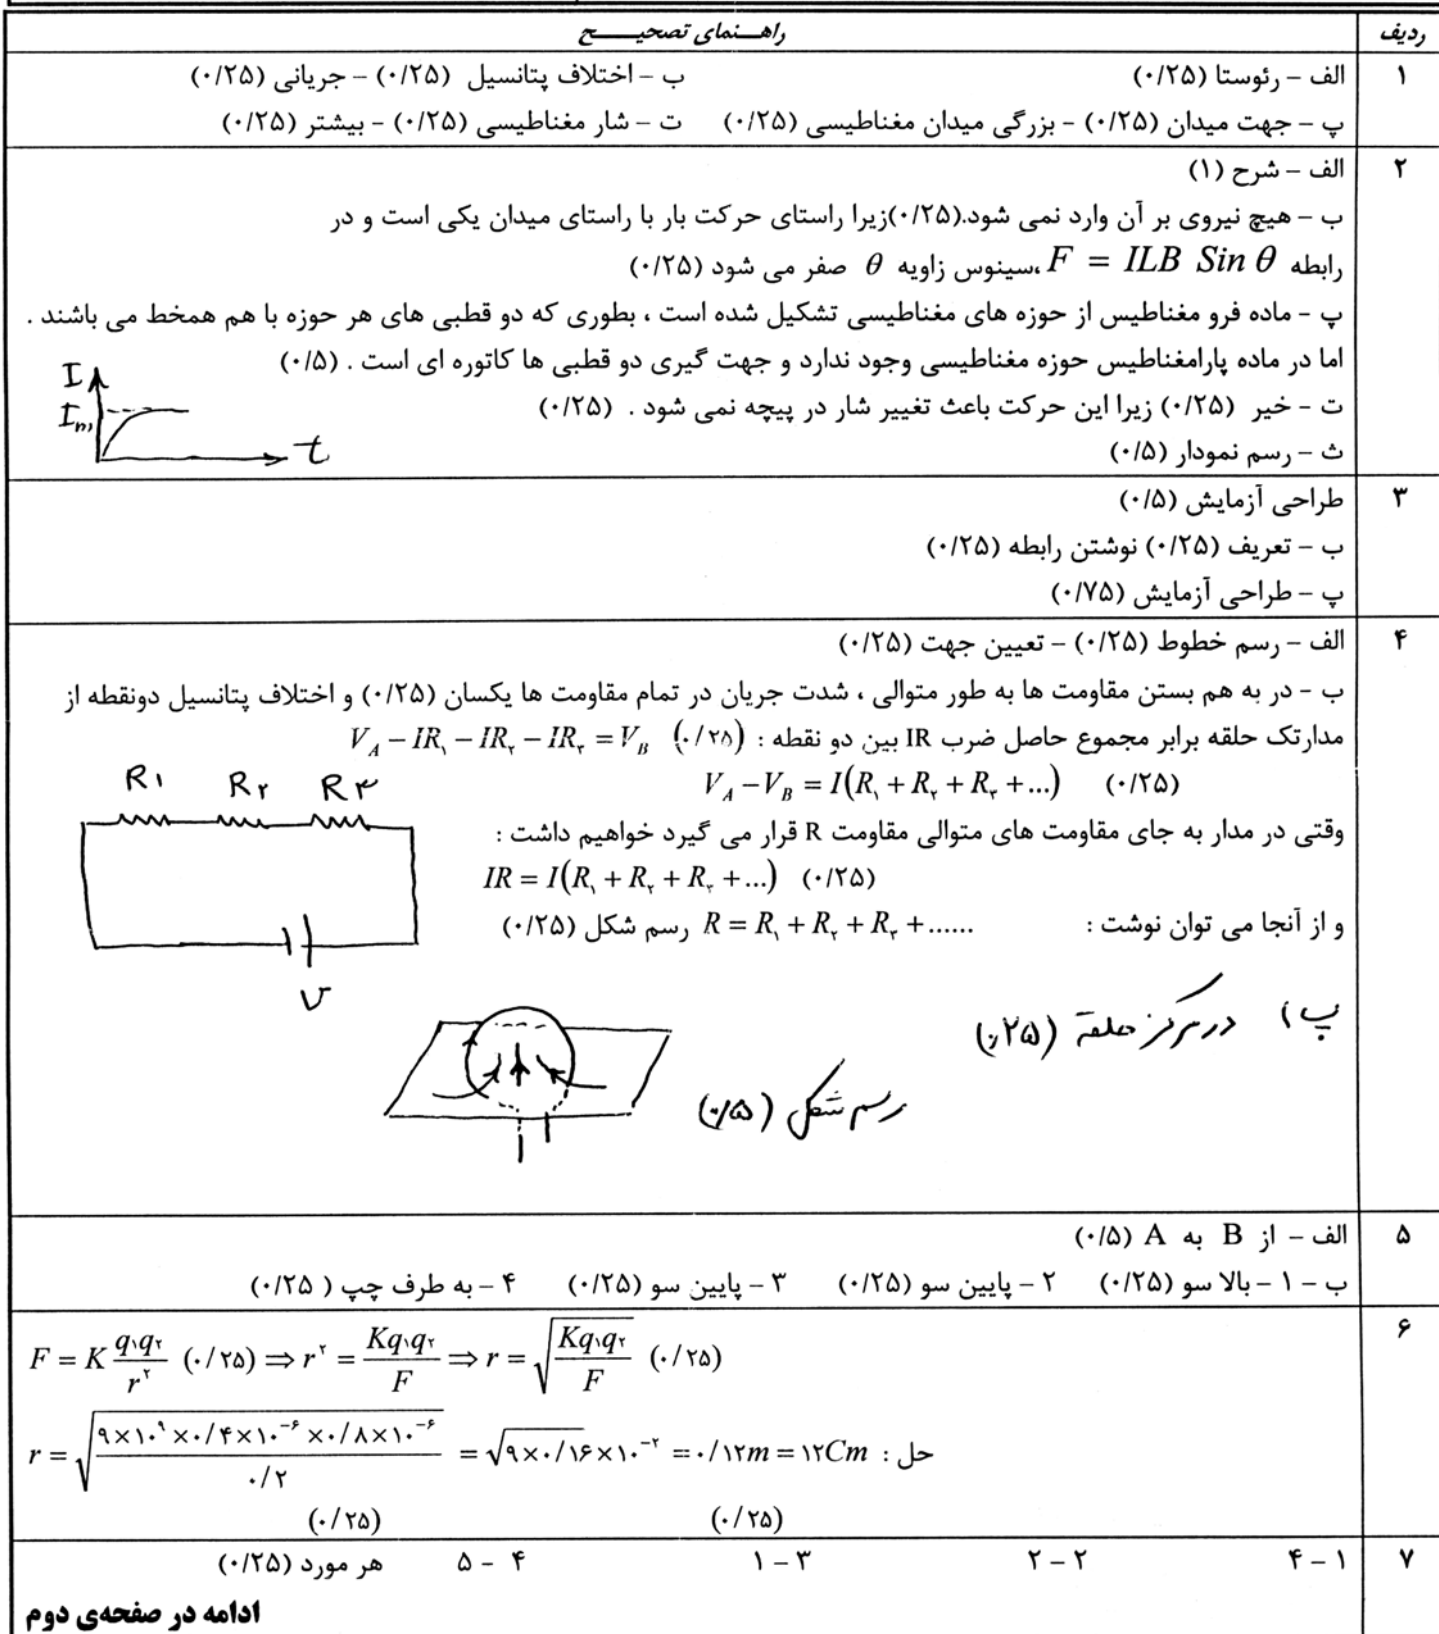 ردیف
راهـــنمای تصحیـــــــح
۱
الف – رئوستا (۰/۲۵) ب – اختلاف پتانسیل (۰/۲۵) – جریانی (۰/۲۵)
پ – جهت میدان (۰/۲۵) - بزرگی میدان مغناطیسی (۰/۲۵) ت – شار مغناطیسی (۰/۲۵) - بیشتر (۰/۲۵)
۲
الف – شرح (۱)
ب – هیچ نیروی بر آن وارد نمی شود.(۰/۲۵)زیرا راستای حرکت بار با راستای میدان یکی است و در
رابطه F = ILB Sin θ ،سینوس زاویه θ صفر می شود (۰/۲۵)
پ - ماده فرو مغناطیس از حوزه های مغناطیسی تشکیل شده است ، بطوری که دو قطبی های هر حوزه با هم همخط می باشند .
اما در ماده پارامغناطیس حوزه مغناطیسی وجود ندارد و جهت گیری دو قطبی ها کاتوره ای است . (۰/۵)
ت - خیر (۰/۲۵) زیرا این حرکت باعث تغییر شار در پیچه نمی شود . (۰/۲۵)
ث – رسم نمودار (۰/۵)
I
Im
t
۳
طراحی آزمایش (۰/۵)
ب – تعریف (۰/۲۵) نوشتن رابطه (۰/۲۵)
پ – طراحی آزمایش (۰/۷۵)
۴
الف – رسم خطوط (۰/۲۵) – تعیین جهت (۰/۲۵)
ب - در به هم بستن مقاومت ها به طور متوالی ، شدت جریان در تمام مقاومت ها یکسان (۰/۲۵) و اختلاف پتانسیل دونقطه از
مدارتک حلقه برابر مجموع حاصل ضرب IR بین دو نقطه : (۰/۲۵) V_A − IR₁ − IR₂ − IR₃ = V_B
V_A − V_B = I(R₁ + R₂ + R₃ + ...) (۰/۲۵)
وقتی در مدار به جای مقاومت های متوالی مقاومت R قرار می گیرد خواهیم داشت :
IR = I(R₁ + R₂ + R₃ + ...) (۰/۲۵)
و از آنجا می توان نوشت : R = R₁ + R₂ + R₃ + ...... رسم شکل (۰/۲۵)
R۱ R۲ R۳
V
پ) در مرکز حلقه (۰/۲۵)
رسم شکل (۰/۵)
۵
الف – از B به A (۰/۵)
ب – ۱ – بالا سو (۰/۲۵) ۲ – پایین سو (۰/۲۵) ۳ – پایین سو (۰/۲۵) ۴ – به طرف چپ (۰/۲۵)
۶
F = K q۱q۲ / r^۲ (۰/۲۵) ⇒ r^۲ = Kq۱q۲ / F ⇒ r = √(Kq۱q۲ / F) (۰/۲۵)
حل : r = √(۹×۱۰^۹ ×۰/۴×۱۰^−۶ ×۰/۸×۱۰^−۶ / ۰/۲) = √۹×۰/۱۶×۱۰^−۲ = ۰/۱۲m = ۱۲Cm
(۰/۲۵) (۰/۲۵)
۷
۱ – ۴ ۲ – ۲ ۳ – ۱ ۴ – ۵ هر مورد (۰/۲۵)
ادامه در صفحه‌ی دوم